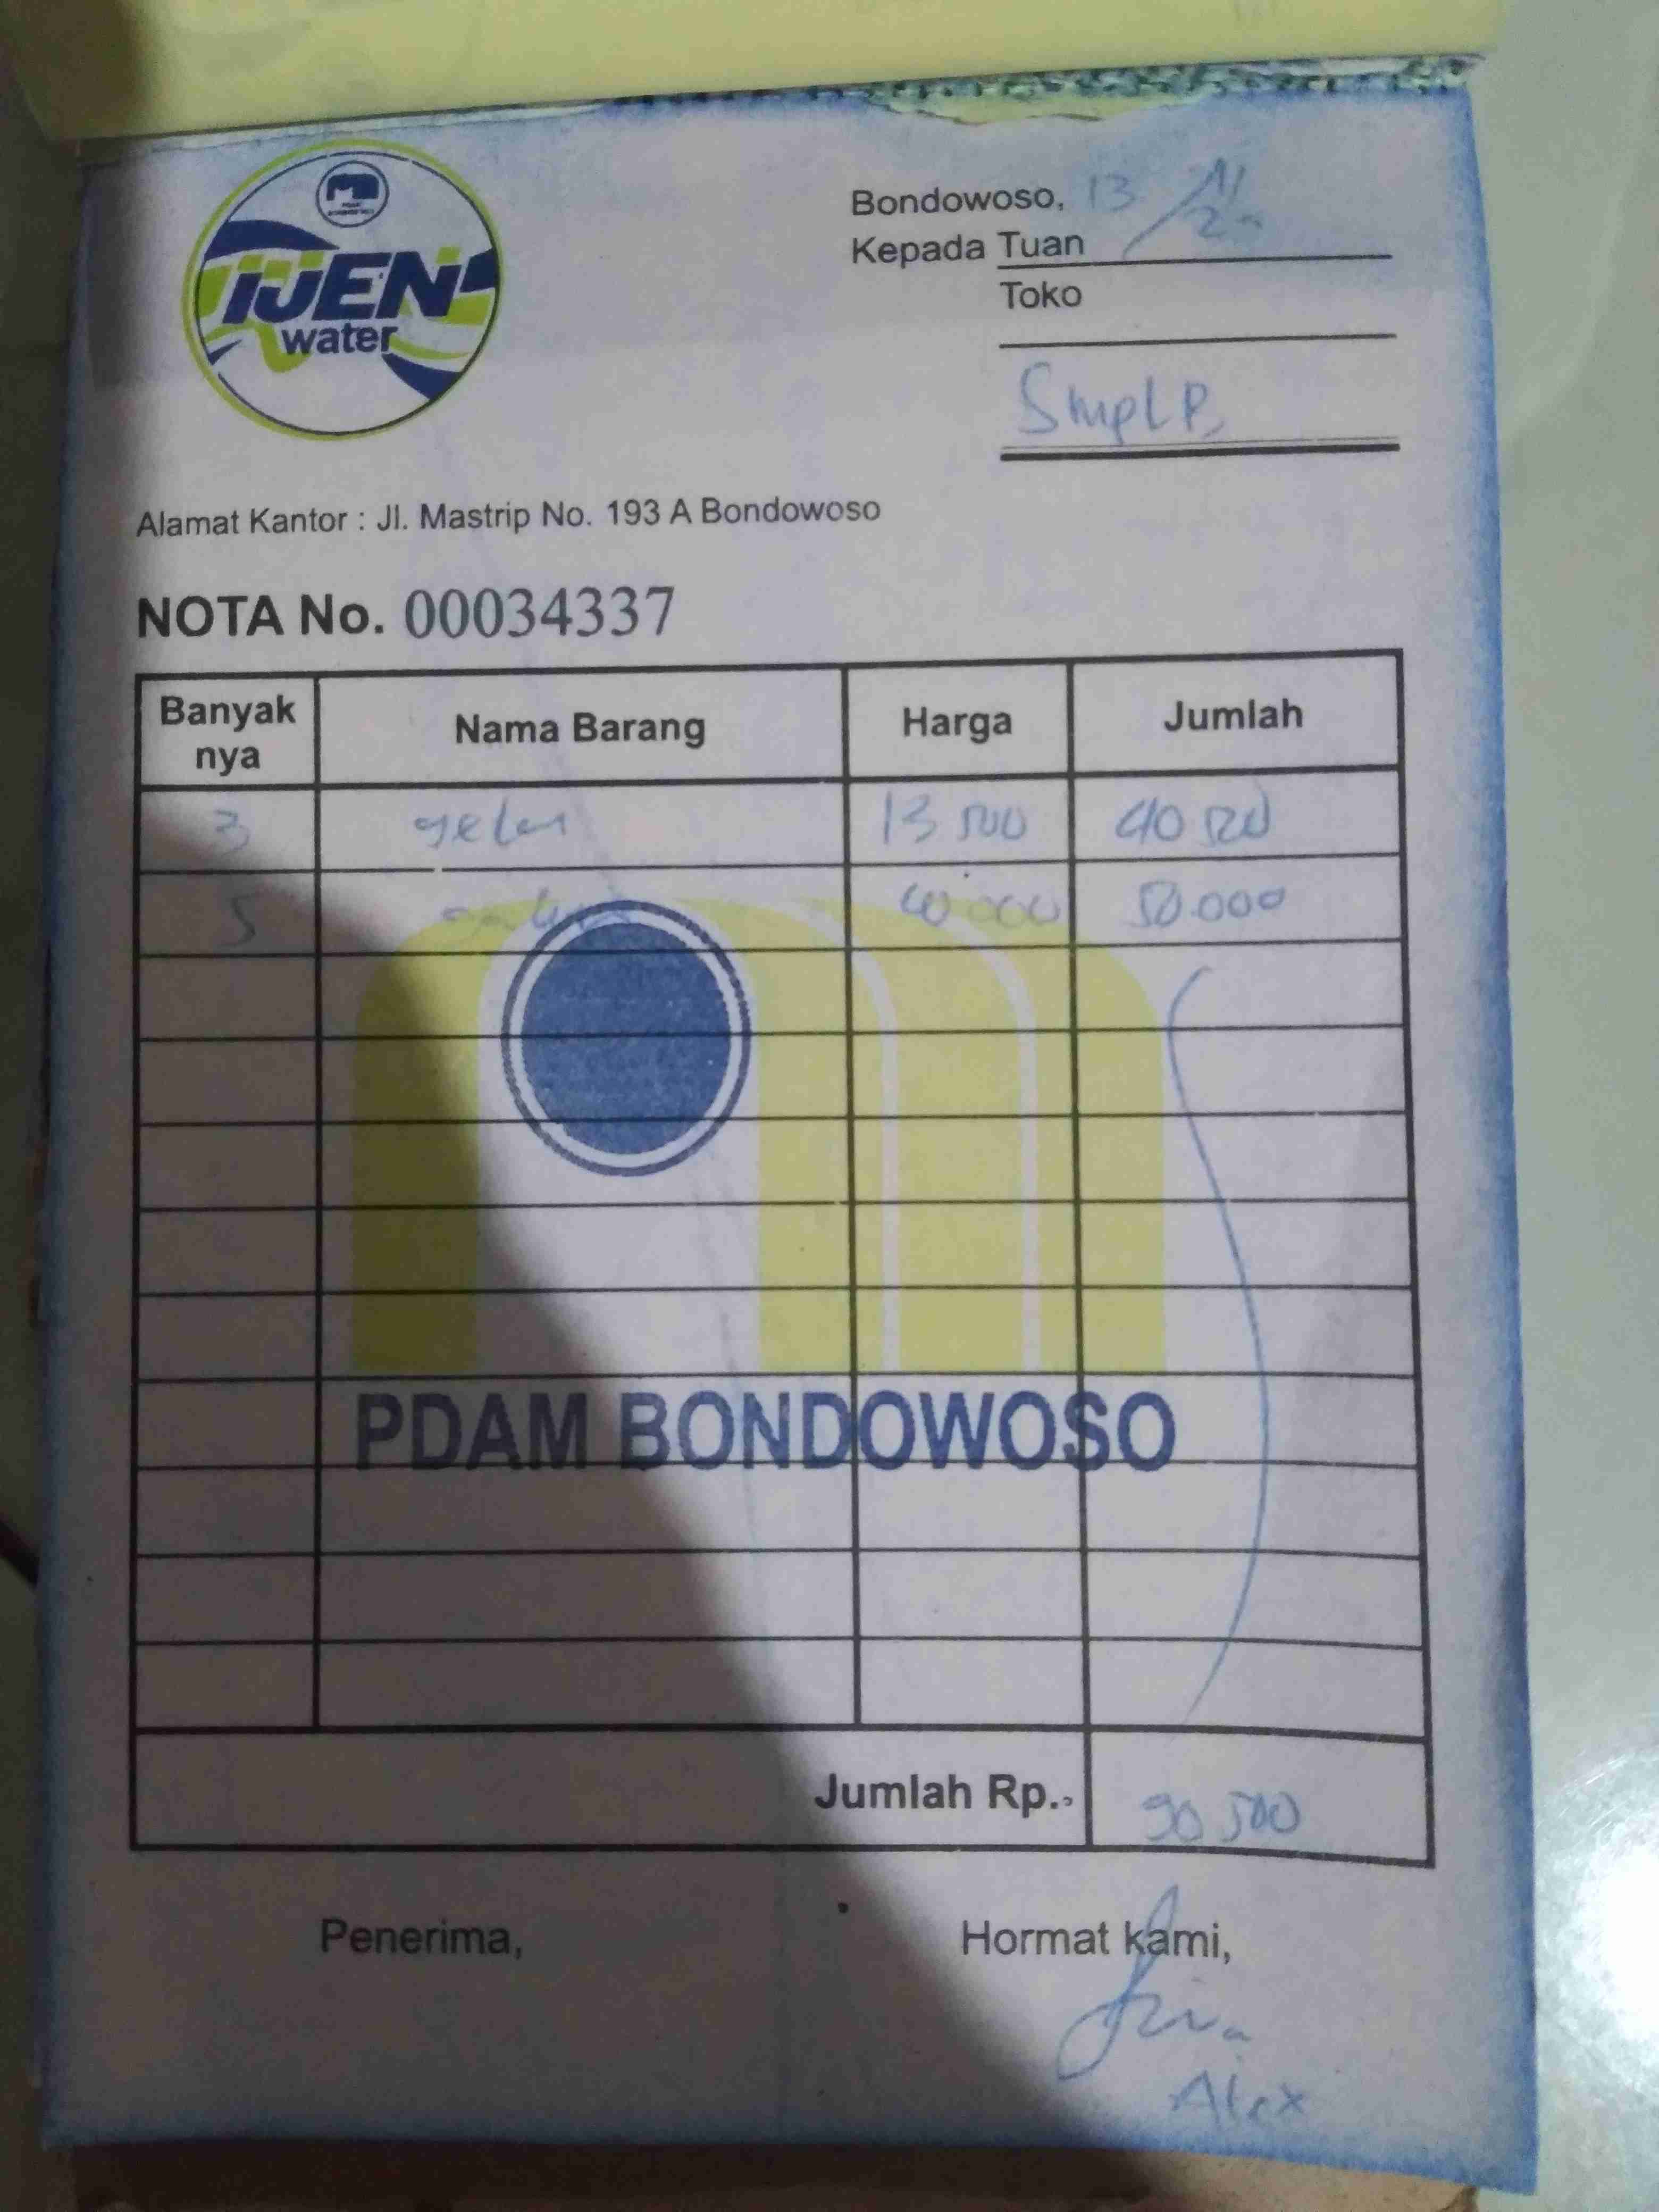 IJEN
water
Bondowoso, 13 /
Kepada Tuan
Toko
Alamat Kantor : Jl. Mastrip No. 193 A Bondowoso
NOTA No. 00034337
Banyak nya Nama Barang Harga Jumlah
3 gelas 13 500 40 500
5 50.000
PDAM BONDOWOSO
Jumlah Rp., 90 500
Penerima, Hormat kami,
Alex